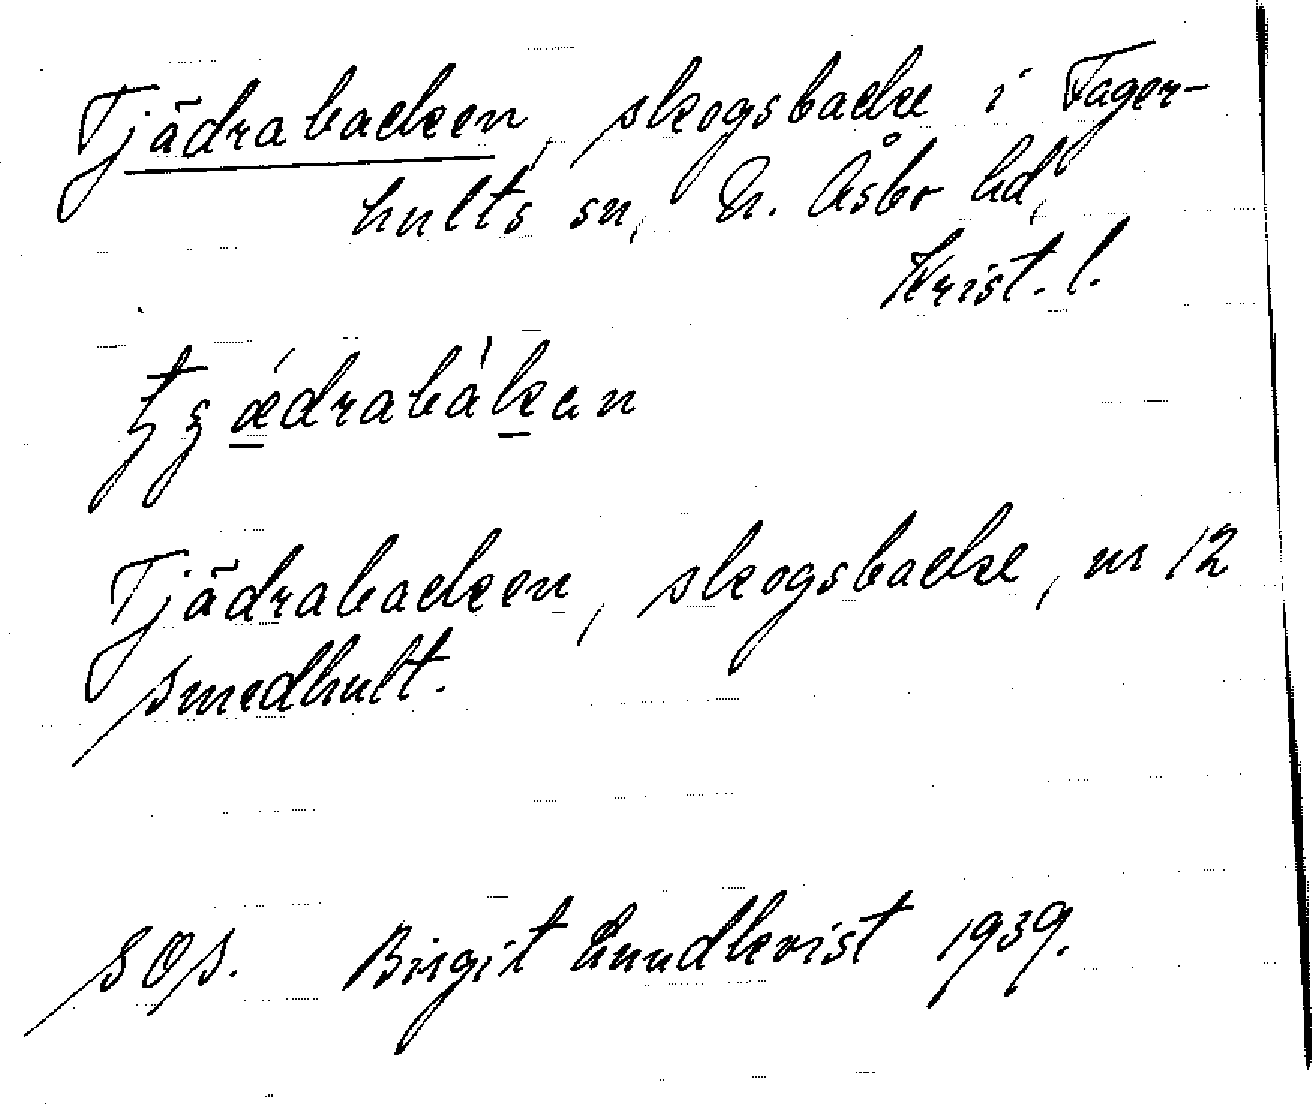 Tjädrabacken, skogsbacke i Fager-
hults sn, N. Åsbo hd,
Krist. l.
Tjädrabacken, skogsbacke, nr 12
Smedhult.
SOS. Birgit Lundkvist 1939.